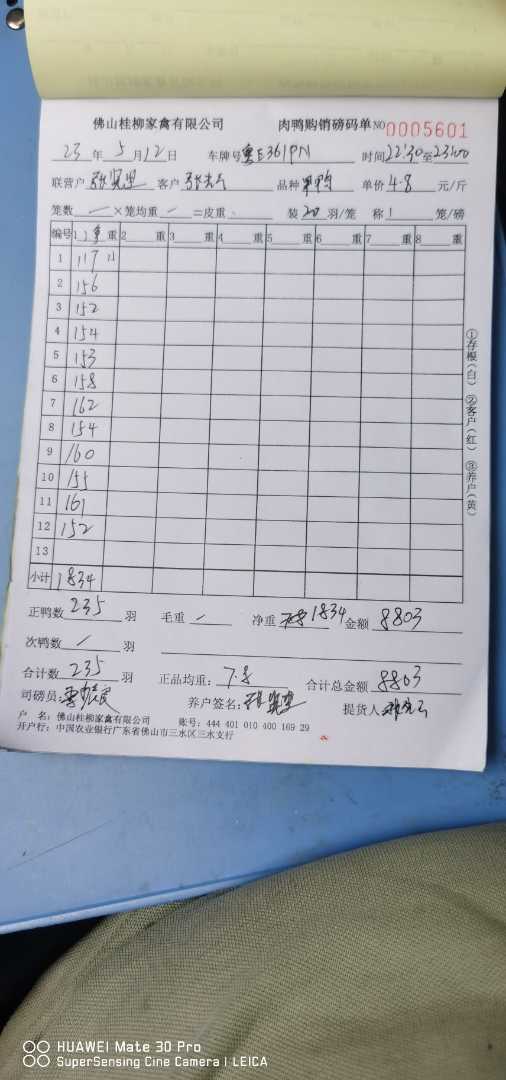 佛山桂柳家禽有限公司 肉鸭购销磅码单 NO 0005601
23 年 5 月 12 日 车牌号 粤E361PN 时间 22:30 至 23:00
联营户 客户 品种 单价 4.8 元/斤
笼数 — ×笼均重 — =皮重 装 20 羽/笼 称 1 笼/磅
编号 1 重 2 重 3 重 4 重 5 重 6 重 7 重 8 重
1 117 11
2 156
3 152
4 154
5 153
6 158
7 162
8 154
9 160
10 155
11 161
12 152
13
小计 1834
正鸭数 235 羽 毛重 — 净重 1834 金额 8803
次鸭数 / 羽
合计数 235 羽 正品均重: 7.8 合计总金额 8803
司磅员: 养户签名: 提货人
户 名: 佛山桂柳家禽有限公司 账号: 444 401 010 400 169 29
开户行: 中国农业银行广东省佛山市三水区三水支行
①存根(白) ②客户(红) ③养户(黄)
HUAWEI Mate 30 Pro
SuperSensing Cine Camera | LEICA